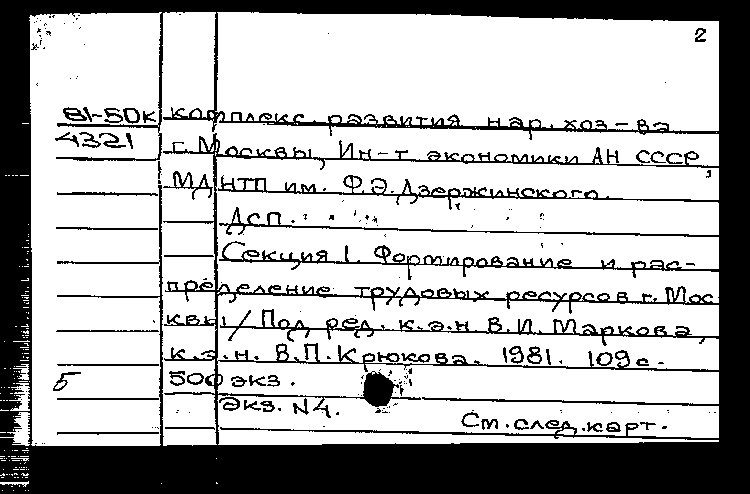 2
81-50к комплекс. развития нар. хоз-ва
4321 г. Москвы, Ин-т экономики АН СССР,
МДНТП им. Ф.Э.Дзержинского.
Дсп.
Секция 1. Формирование и рас-
пределение трудовых ресурсов г. Мос
квы / Под ред. к.э.н В.И. Маркова,
к.э.н. В.П.Крюкова. 1981. 109с.
Б 500 экз.
Экз. N4.
См. след. карт.